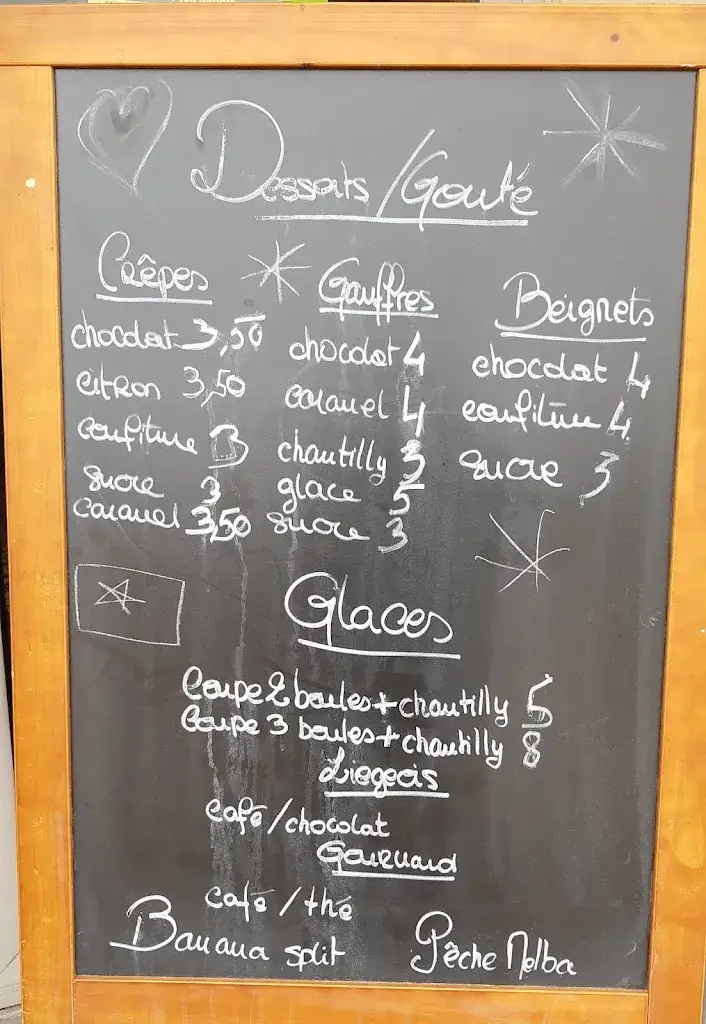 Desserts/Gouté
Crêpes
chocolat 3,50
citron 3,50
confiture 3
sucre 3
caramel 3,50
Gauffres
chocolat 4
caramel 4
chantilly 3
glace 5
sucre 3
Beignets
chocolat 4
confiture 4
sucre 3
Glaces
Coupe 2 boules + chantilly 5
Coupe 3 boules + chantilly 8
Liegeois
café/chocolat
Gourmand
café/thé
Banana split
Pêche Melba